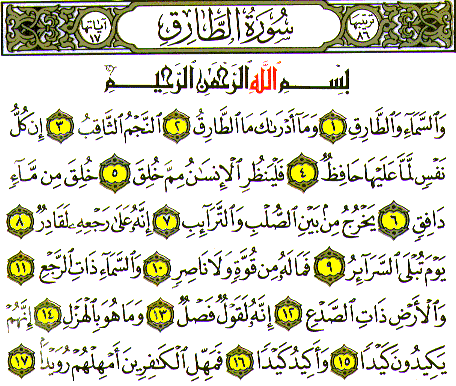 ترتيبها ٨٦ سُورَةُ الطَّارِقِ آياتها ١٧
بِسْمِ اللَّهِ الرَّحْمَٰنِ الرَّحِيمِ
وَالسَّمَآءِ وَالطَّارِقِ ١ وَمَآ أَدْرَىٰكَ مَا الطَّارِقُ ٢ النَّجْمُ الثَّاقِبُ ٣ إِن كُلُّ
نَفْسٍ لَّمَّا عَلَيْهَا حَافِظٌ ٤ فَلْيَنظُرِ الْإِنسَٰنُ مِمَّ خُلِقَ ٥ خُلِقَ مِن مَّآءٍ
دَافِقٍ ٦ يَخْرُجُ مِنۢ بَيْنِ الصُّلْبِ وَالتَّرَآئِبِ ٧ إِنَّهُۥ عَلَىٰ رَجْعِهِۦ لَقَادِرٌ ٨
يَوْمَ تُبْلَى السَّرَآئِرُ ٩ فَمَا لَهُۥ مِن قُوَّةٍ وَلَا نَاصِرٍ ١٠ وَالسَّمَآءِ ذَاتِ الرَّجْعِ ١١
وَالْأَرْضِ ذَاتِ الصَّدْعِ ١٢ إِنَّهُۥ لَقَوْلٌ فَصْلٌ ١٣ وَمَا هُوَ بِالْهَزْلِ ١٤ إِنَّهُمْ
يَكِيدُونَ كَيْدًا ١٥ وَأَكِيدُ كَيْدًا ١٦ فَمَهِّلِ الْكَٰفِرِينَ أَمْهِلْهُمْ رُوَيْدًۢا ١٧